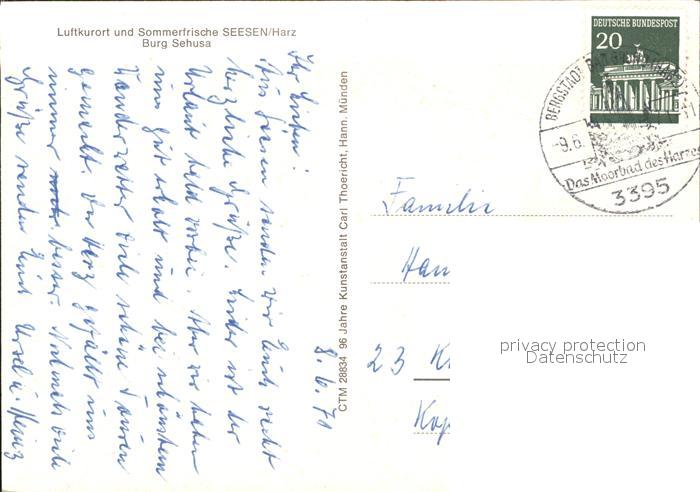 Luftkurort und Sommerfrische SEESEN/Harz
Burg Sehusa
8.6.70
Ihr Lieben!
Aus Seesen senden wir Euch recht
herzliche Grüße. Leider ist der
Urlaub bald vorbei. Aber wir haben
uns gut erholt und bei schönstem
Wanderwetter viele schöne Touren
gemacht. Der Harz gefällt uns
immer besser. Nochmals viele
Grüße senden Euch Ursel u. Heinz
CTM 28834 96 Jahre Kunstanstalt Carl Thoericht, Hann. Münden
DEUTSCHE BUNDESPOST
20
BERGSTADT BAD GRUND (HARZ)
-9.6.
Das Moorbad des Harzes
3395
Familie
Han
23 K
Kop
privacy protection
Datenschutz